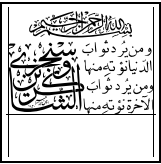 بسم الله الرحمن الرحيم
ومن يرد ثواب
الدنيا نؤته منها
ومن يرد ثواب
الآخرة نؤته منها
وسنجزي
الشاكرين